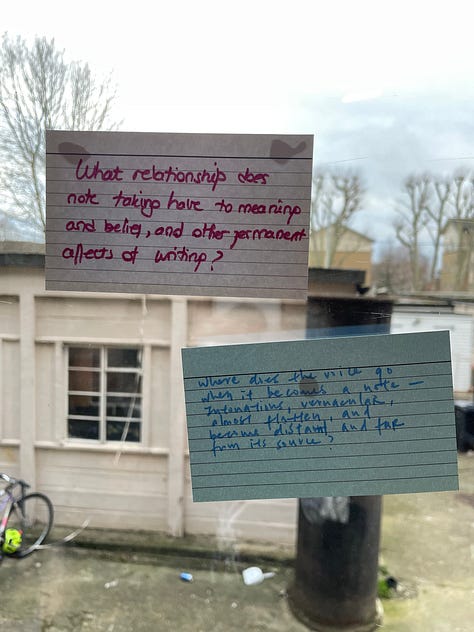 What relationship does
note taking have to meaning
and belief, and other permanent
affects of writing?
Where does the voice go
when it becomes a note —
Intonations, vernacular,
almost flatten, and
become distant, and far
from its source?